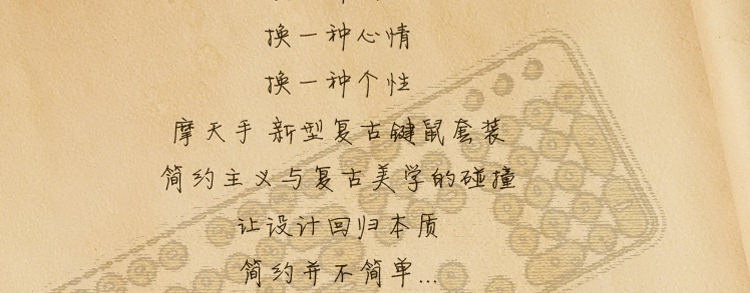 换一种心情
换一种个性
摩天手 新型复古键鼠套装
简约主义与复古美学的碰撞
让设计回归本质
简约并不简单...